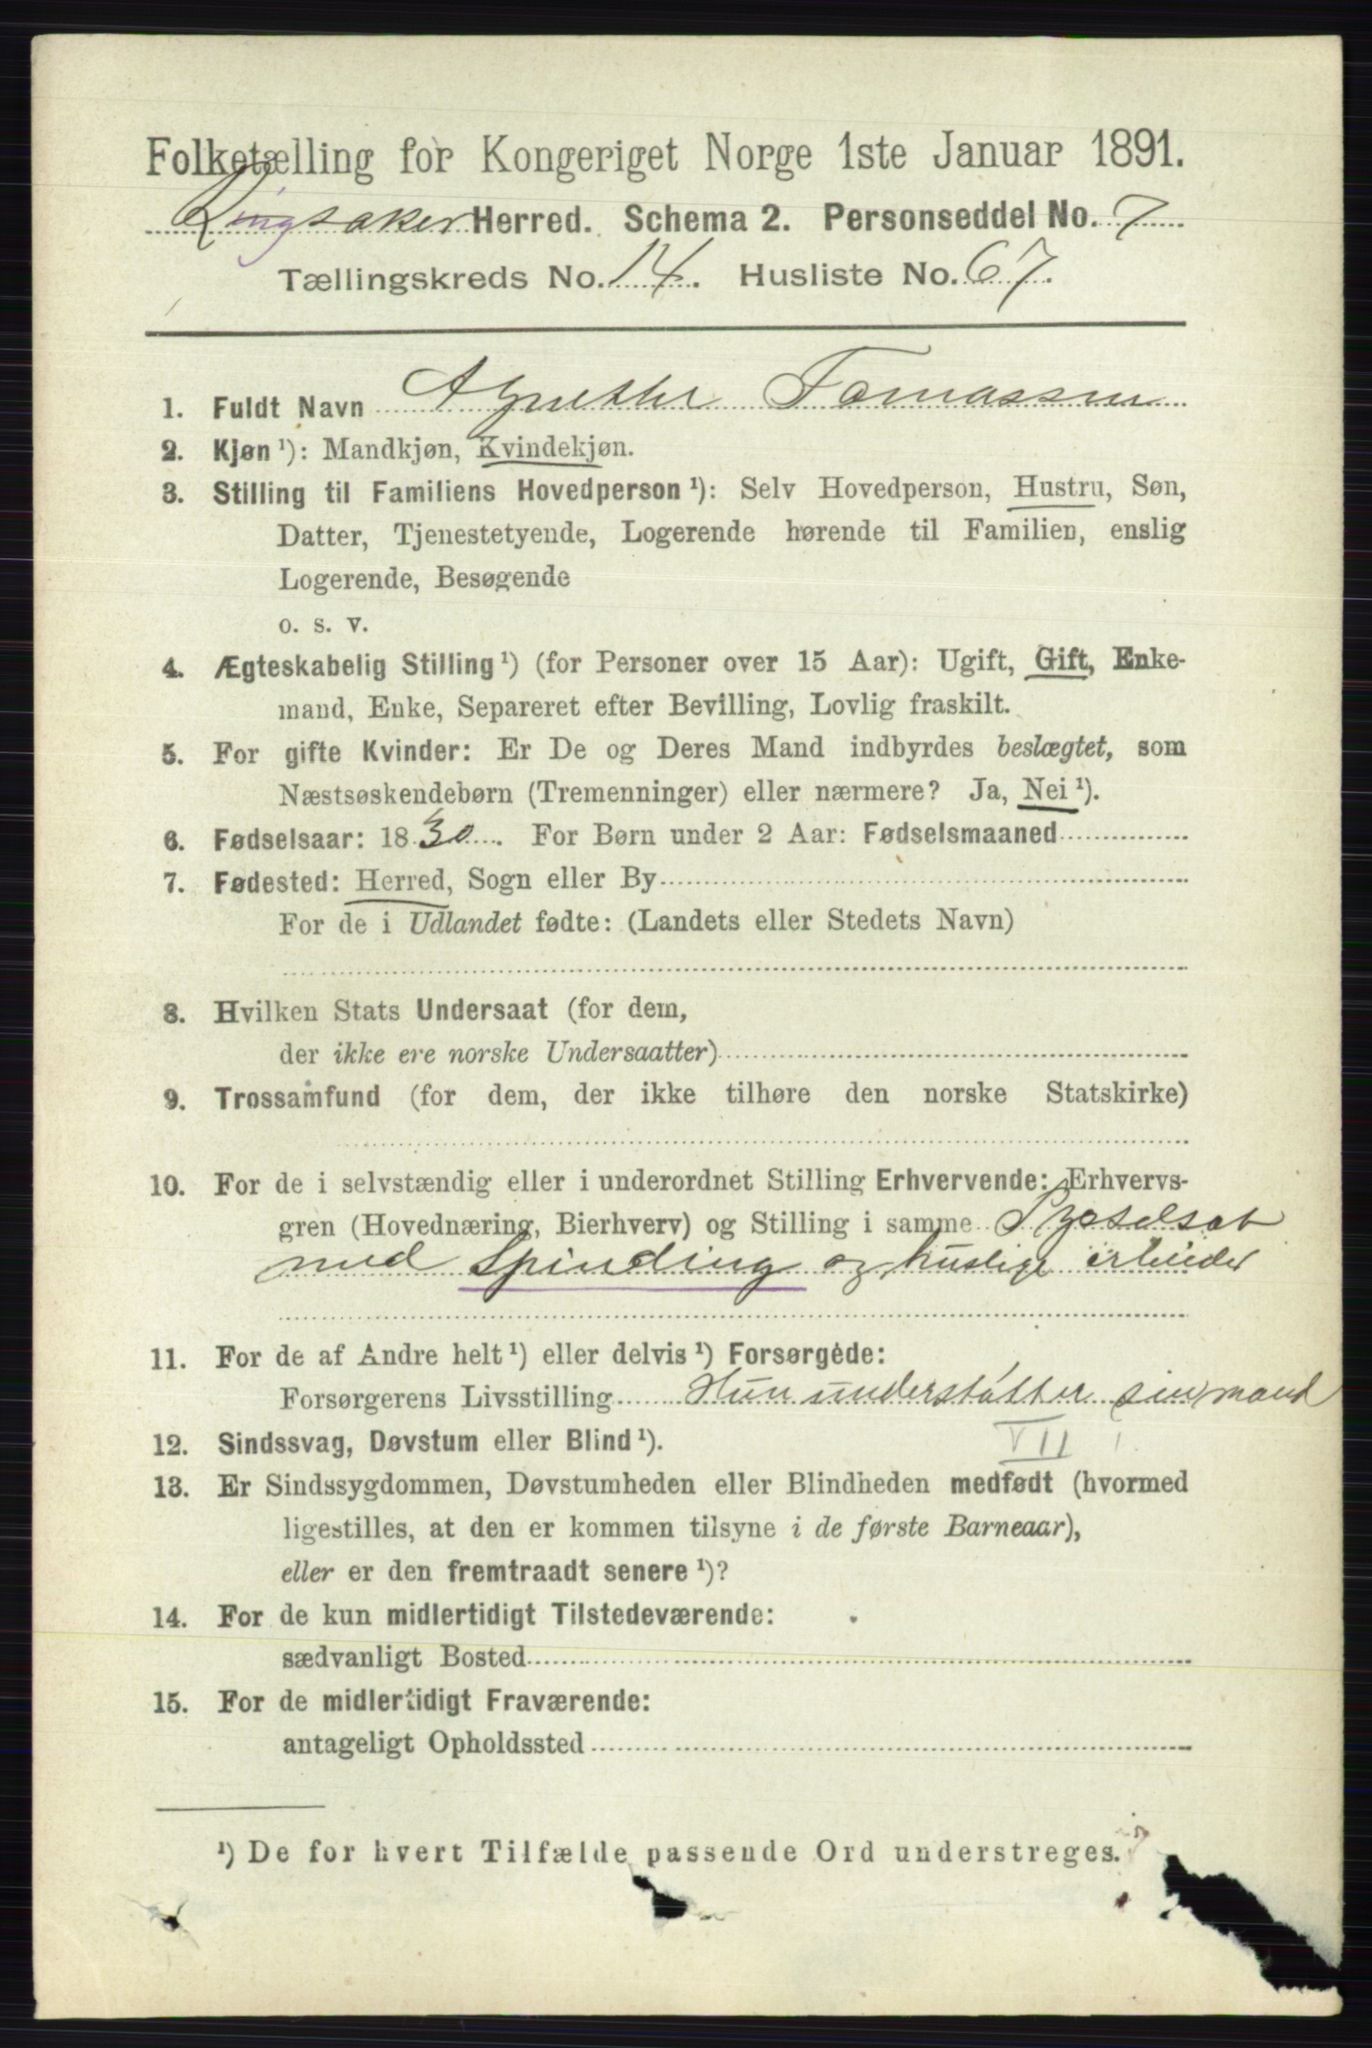 Folketælling for Kongeriget Norge 1ste Januar 1891.
Ringsaker Herred. Schema 2. Personseddel No. 7
Tællingskreds No. 14. Husliste No. 67.
1. Fuldt Navn Agnethe Tomassen
2. Kjøn ¹): Mandkjøn, Kvindekjøn.
3. Stilling til Familiens Hovedperson ¹): Selv Hovedperson, Hustru, Søn,
Datter, Tjenestetyende, Logerende hørende til Familien, enslig
Logerende, Besøgende
o. s. v.
4. Ægteskabelig Stilling ¹) (for Personer over 15 Aar): Ugift, Gift, Enke-
mand, Enke, Separeret efter Bevilling, Lovlig fraskilt.
5. For gifte Kvinder: Er De og Deres Mand indbyrdes beslægtet, som
Næstsøskendebørn (Tremenninger) eller nærmere? Ja, Nei ¹).
6. Fødselsaar: 1830. For Børn under 2 Aar: Fødselsmaaned
7. Fødested: Herred, Sogn eller By
For de i Udlandet fødte: (Landets eller Stedets Navn)
8. Hvilken Stats Undersaat (for dem,
der ikke ere norske Undersaatter)
9. Trossamfund (for dem, der ikke tilhøre den norske Statskirke)
10. For de i selvstændig eller i underordnet Stilling Erhvervende: Erhvervs-
gren (Hovednæring, Bierhverv) og Stilling i samme Sysselsat
med Spinding og huslige arbeider
11. For de af Andre helt ¹) eller delvis ¹) Forsørgede:
Forsørgerens Livsstilling Hun understøtter sin mand
12. Sindssvag, Døvstum eller Blind ¹). VII
13. Er Sindssygdommen, Døvstumheden eller Blindheden medfødt (hvormed
ligestilles, at den er kommen tilsyne i de første Barneaar),
eller er den fremtraadt senere ¹)?
14. For de kun midlertidigt Tilstedeværende:
sædvanligt Bosted
15. For de midlertidigt Fraværende:
antageligt Opholdssted
¹) De for hvert Tilfælde passende Ord understreges.